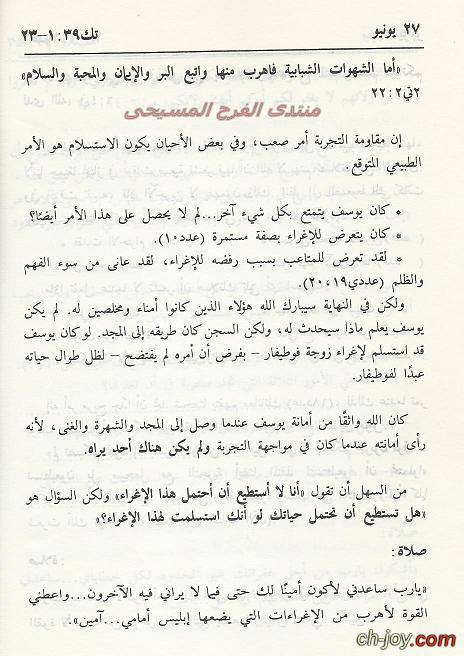 ٢٧ يونيو تك٣٩: ١-٢٣
«أما الشهوات الشبابية فاهرب منها واتبع البر والإيمان والمحبة والسلام»
٢تي٢: ٢٢
منتدى الفرح المسيحى
إن مقاومة التجربة أمر صعب، وفي بعض الأحيان يكون الاستسلام هو الأمر
الطبيعي المتوقع.
* كان يوسف يتمتع بكل شيء آخر...لم لا يحصل على هذا الأمر أيضًا؟
* كان يتعرض للإغراء بصفة مستمرة (عدد١٠).
* لقد تعرض للمتاعب بسبب رفضه للإغراء، لقد عانى من سوء الفهم
والظلم (عددي١٩، ٢٠).
ولكن في النهاية سيبارك الله هؤلاء الذين كانوا أمناء ومخلصين له. لم يكن
يوسف يعلم ماذا سيحدث له، ولكن السجن كان طريقه إلى المجد. لو كان يوسف
قد استسلم لإغراء زوجة فوطيفار – بفرض أن أمره لم يفتضح – لظل طوال حياته
عبدًا لفوطيفار.
كان الله واثقًا من أمانة يوسف عندما وصل إلى المجد والشهرة والغنى، لأنه
رأى أمانته عندما كان في مواجهة التجربة ولم يكن هناك أحد يراه.
من السهل أن نقول «أنا لا أستطيع أن أحتمل هذا الإغراء» ولكن السؤال هو
«هل تستطيع أن تحتمل حياتك لو أنك استسلمت لهذا الإغراء؟»
صلاة:
«يارب ساعدني لأكون أمينًا لك حتى فيما لا يراني فيه الآخرون...واعطني
القوة لأهرب من الإغراءات التي يضعها إبليس أمامي...آمين».
ch-joy.com